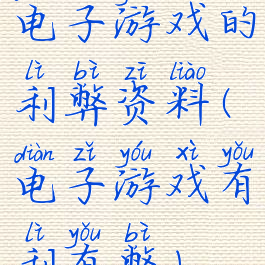 电子游戏的
lì bì zī liào
利弊资料(
diàn zǐ yóu xì yǒu
电子游戏有
lì yǒu bì
利有弊)